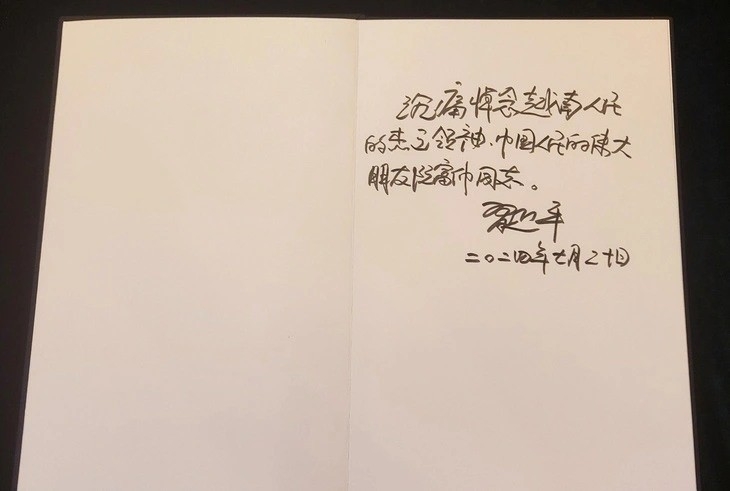 沉痛悼念越南人民
的杰出领袖、中国人民的伟大
朋友阮富仲同志。
习近平
二〇二四年七月二十日